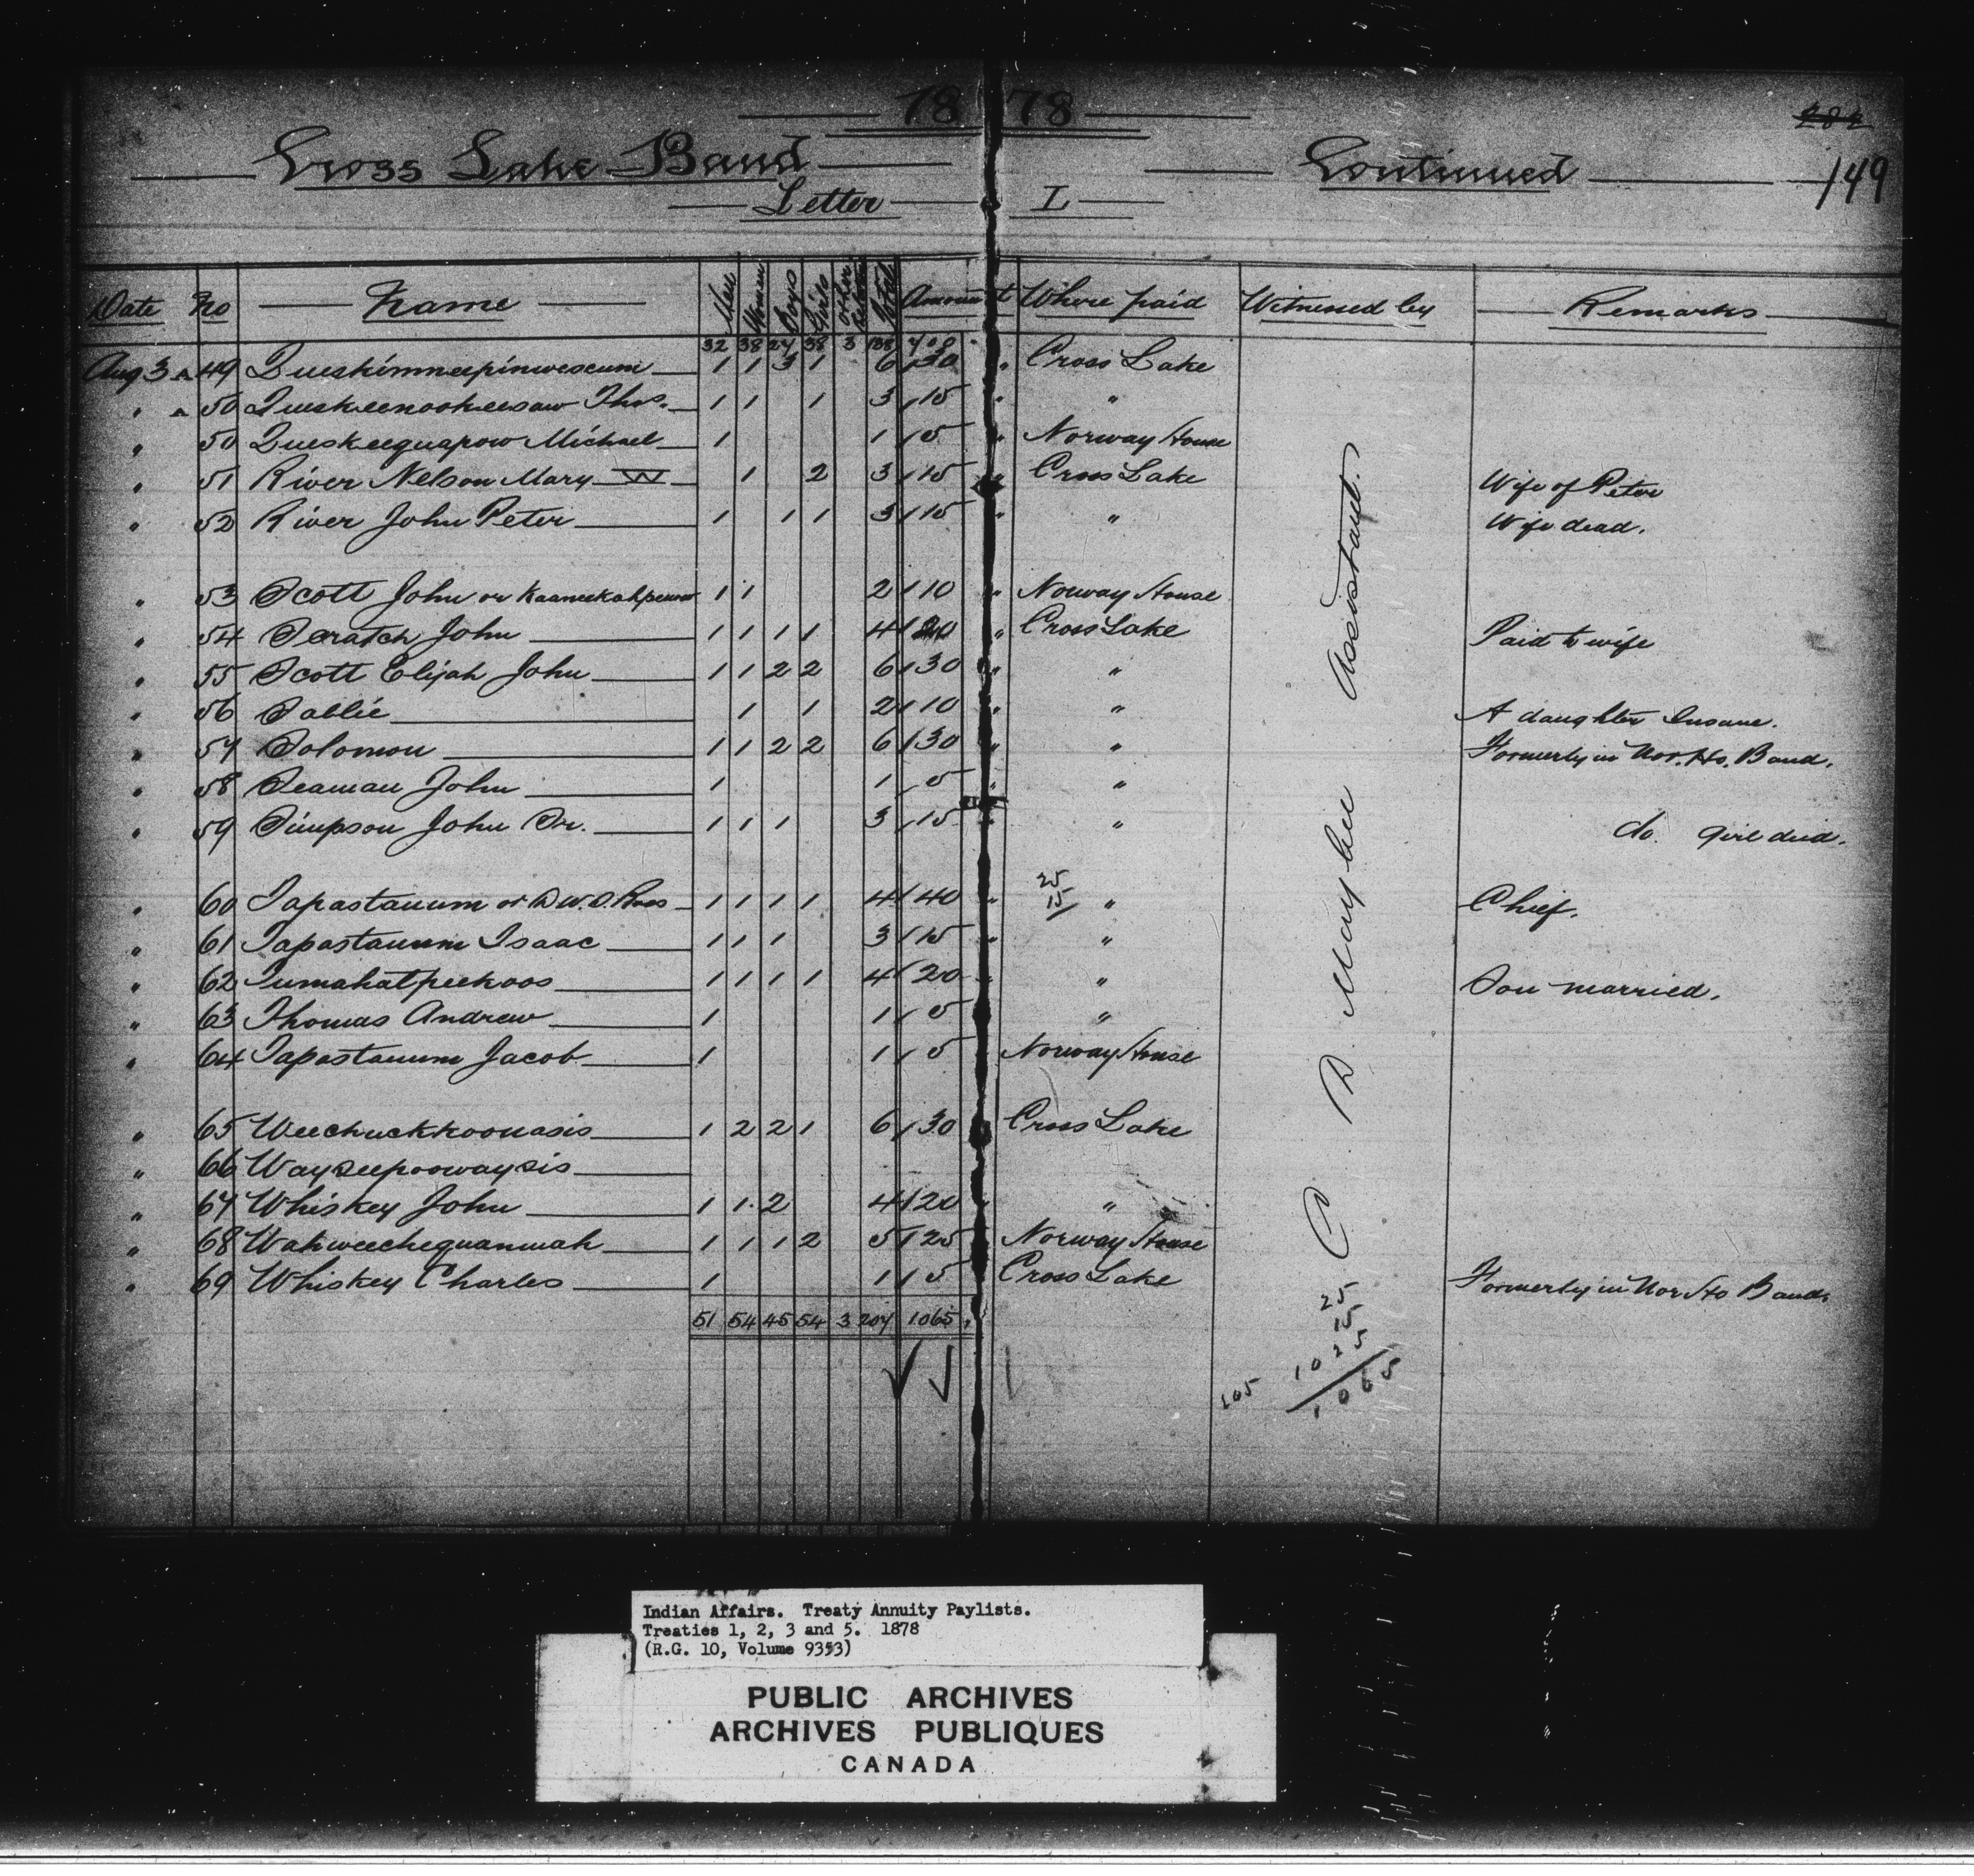 18 78
282
Cross Lake Band Continued 149
Letter L
Date No Name Men Women Boys Girls Other Relatives Total Amount Where paid Witnessed by Remarks
32 38 24 38 3 138 700
Aug 3 A 49 Queskimneepinwescum 1 1 3 1 6 30 " Cross Lake
" A 50 Queskeenookeesaw Thos. 1 1 1 3 15 " "
" 50 Queskeequapow Michael 1 1 5 " Norway House
" 51 River Nelson Mary W 1 2 3 15 " Cross Lake Wife of Peter
" 52 River John Peter 1 1 1 3 15 " " Wife dead.
" 53 Scott John or 1 1 2 10 " Norway House
" 54 Scratch John 1 1 1 1 4 20 " Cross Lake Paid to wife
" 55 Scott Elijah John 1 1 2 2 6 30 " "
" 56 Sallie 1 1 2 10 " " A daughter Insane.
" 57 Solomon 1 1 2 2 6 30 " " Formerly in Nor. Ho. Band.
" 58 Seaman John 1 1 5 " "
" 59 Simpson John Sr. 1 1 1 3 15 " " do. girl died.
" 60 Tapastanum or D. W. O. Ross 1 1 1 1 4 40 " 25 15 " Chief.
" 61 Tapastanum Isaac 1 1 1 3 15 " "
" 62 Tumahatpeekoos 1 1 1 1 4 20 " " Son married.
" 63 Thomas Andrew 1 1 5 "
" 64 Tapastanum Jacob 1 1 5 " Norway House
" 65 Weechuckkoonasis 1 2 2 1 6 30 Cross Lake
" 66 Wayseepoowaysis
" 67 Whiskey John 1 1 2 4 20 " "
" 68 Wahweechequanwah 1 1 1 2 5 25 " Norway House
" 69 Whiskey Charles 1 1 5 " Cross Lake Formerly in Nor Ho Band.
51 54 45 54 3 207 1065
C D May bee Assistant.
25
15
1025
105 1065
Indian Affairs. Treaty Annuity Paylists.
Treaties 1, 2, 3 and 5. 1878
(R.G. 10, Volume 9353)
PUBLIC ARCHIVES
ARCHIVES PUBLIQUES
CANADA